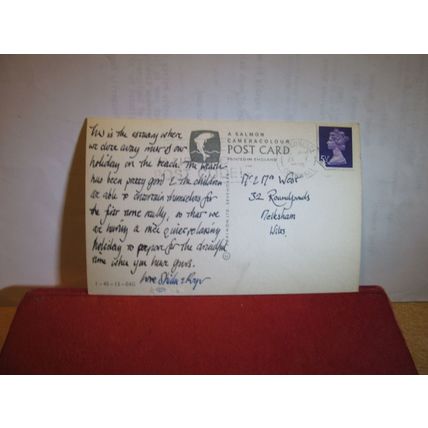 This is the estuary where
we drove away most of our
holiday on the beach. The weather
has been pretty good & the children
are able to entertain themselves for
the first time really, so that we
are having a nice quiet relaxing
holiday to prepare for the dreadful
time when you have gone.
love Sheila & Roger
1-45-11-04G
A SALMON
CAMERACOLOUR
POST CARD
PRINTED IN ENGLAND
Mr & Mrs West
32 Roundponds
Melksham
Wilts.